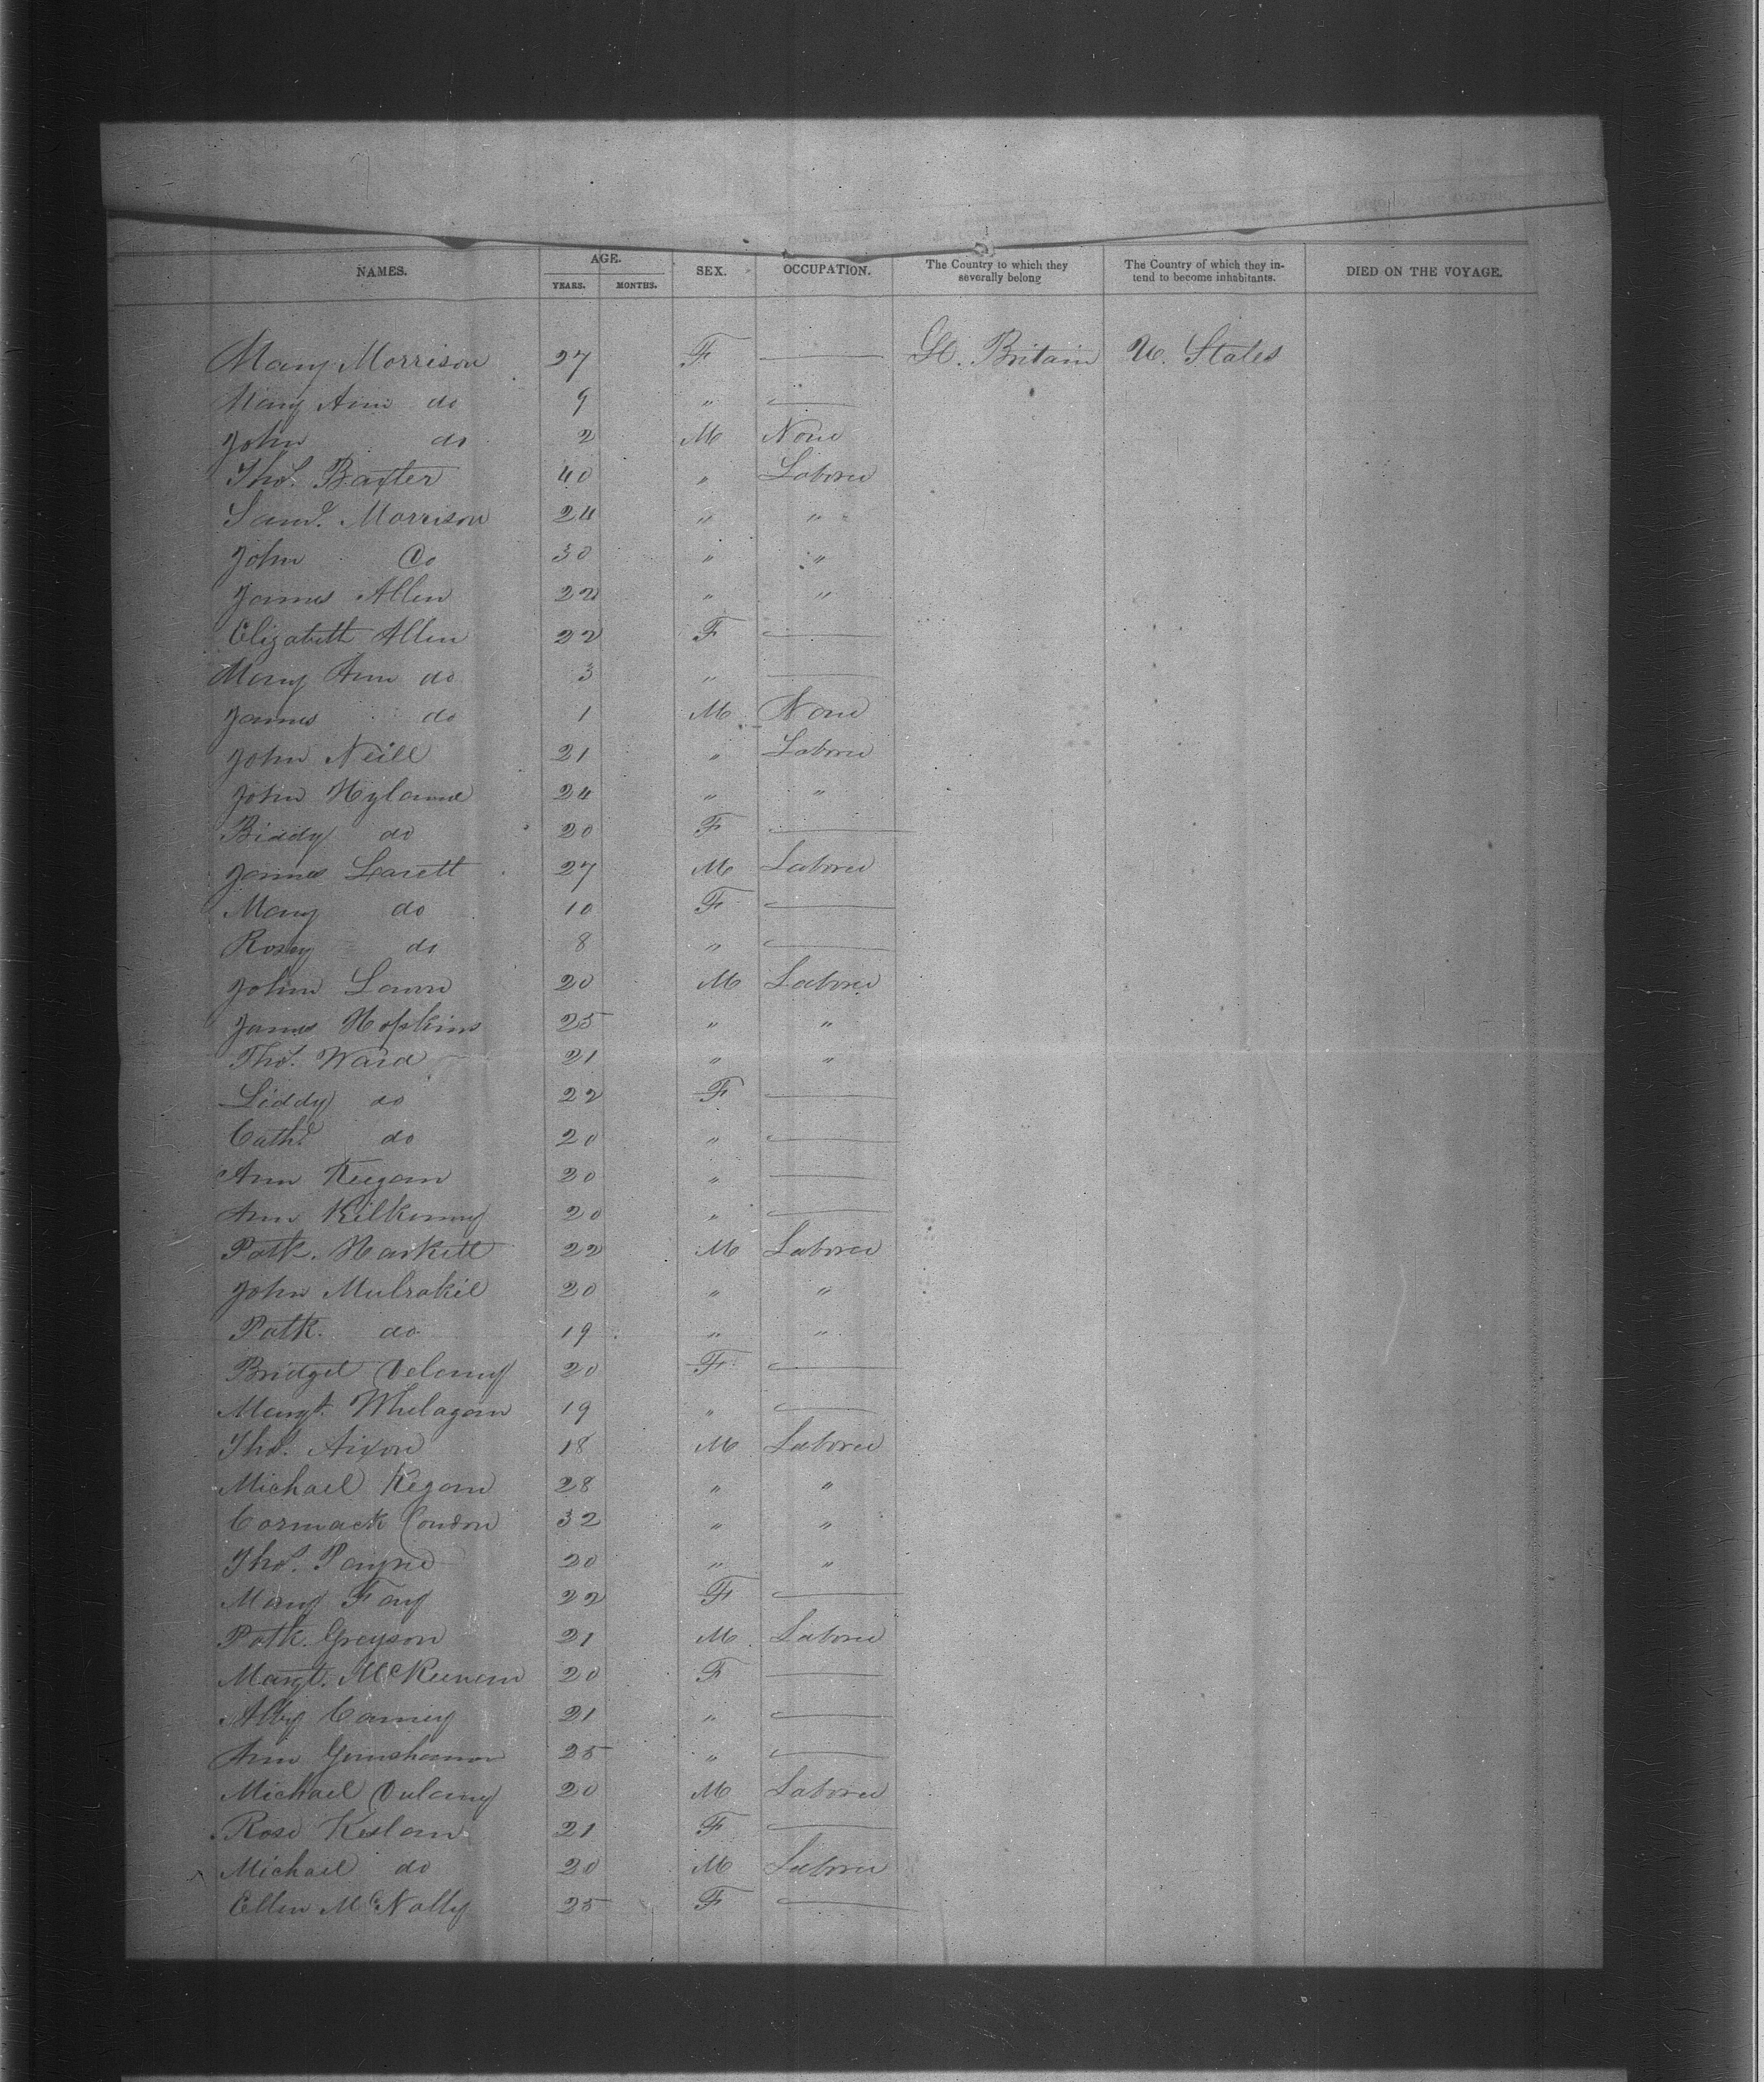 NAMES. AGE. SEX. OCCUPATION. The Country to which they severally belong The Country of which they intend to become inhabitants. DIED ON THE VOYAGE.
YEARS. MONTHS.
Mary Morrison 27 F — Gt. Britain U. States
Mary Ann do 9 " —
John do 2 M None
Thos. Baxter 40 " Laborer
Saml. Morrison 24 " "
John Do 30 " "
James Allen 22 " "
Elizabeth Allen 22 F —
Mary Ann do 3 " —
James do 1 M None
John Neill 21 " Laborer
John Hyland 24 " "
Biddy do 20 F —
James Larett 27 M Laborer
Mary do 10 F —
Rosey do 8 " —
John Lawn 20 M Laborer
James Hopkins 25 " "
Thos. Ward 21 " "
Liddy do 22 F —
Cath. do 20 " —
Ann Keegan 20 " —
Ann Kilkenny 20 " —
Patk. Harkett 22 M Laborer
John Mulrakil 20 " "
Patk. do 19 " "
Bridget Delany 20 F —
Margt. Whelagan 19 " —
Thos. Aixon 18 M Laborer
Michael Kegan 28 " "
Cormack Condon 32 " "
Thos. Payne 20 " "
Mary Fay 22 F —
Patk. Greyson 21 M Laborer
Margt. McKeenan 20 F —
Ally Carney 21 " —
Ann 25 " —
Michael Dulany 20 M Laborer
Rose Keelan 21 F —
Michael do 20 M Laborer
Ellen McNally 25 F —